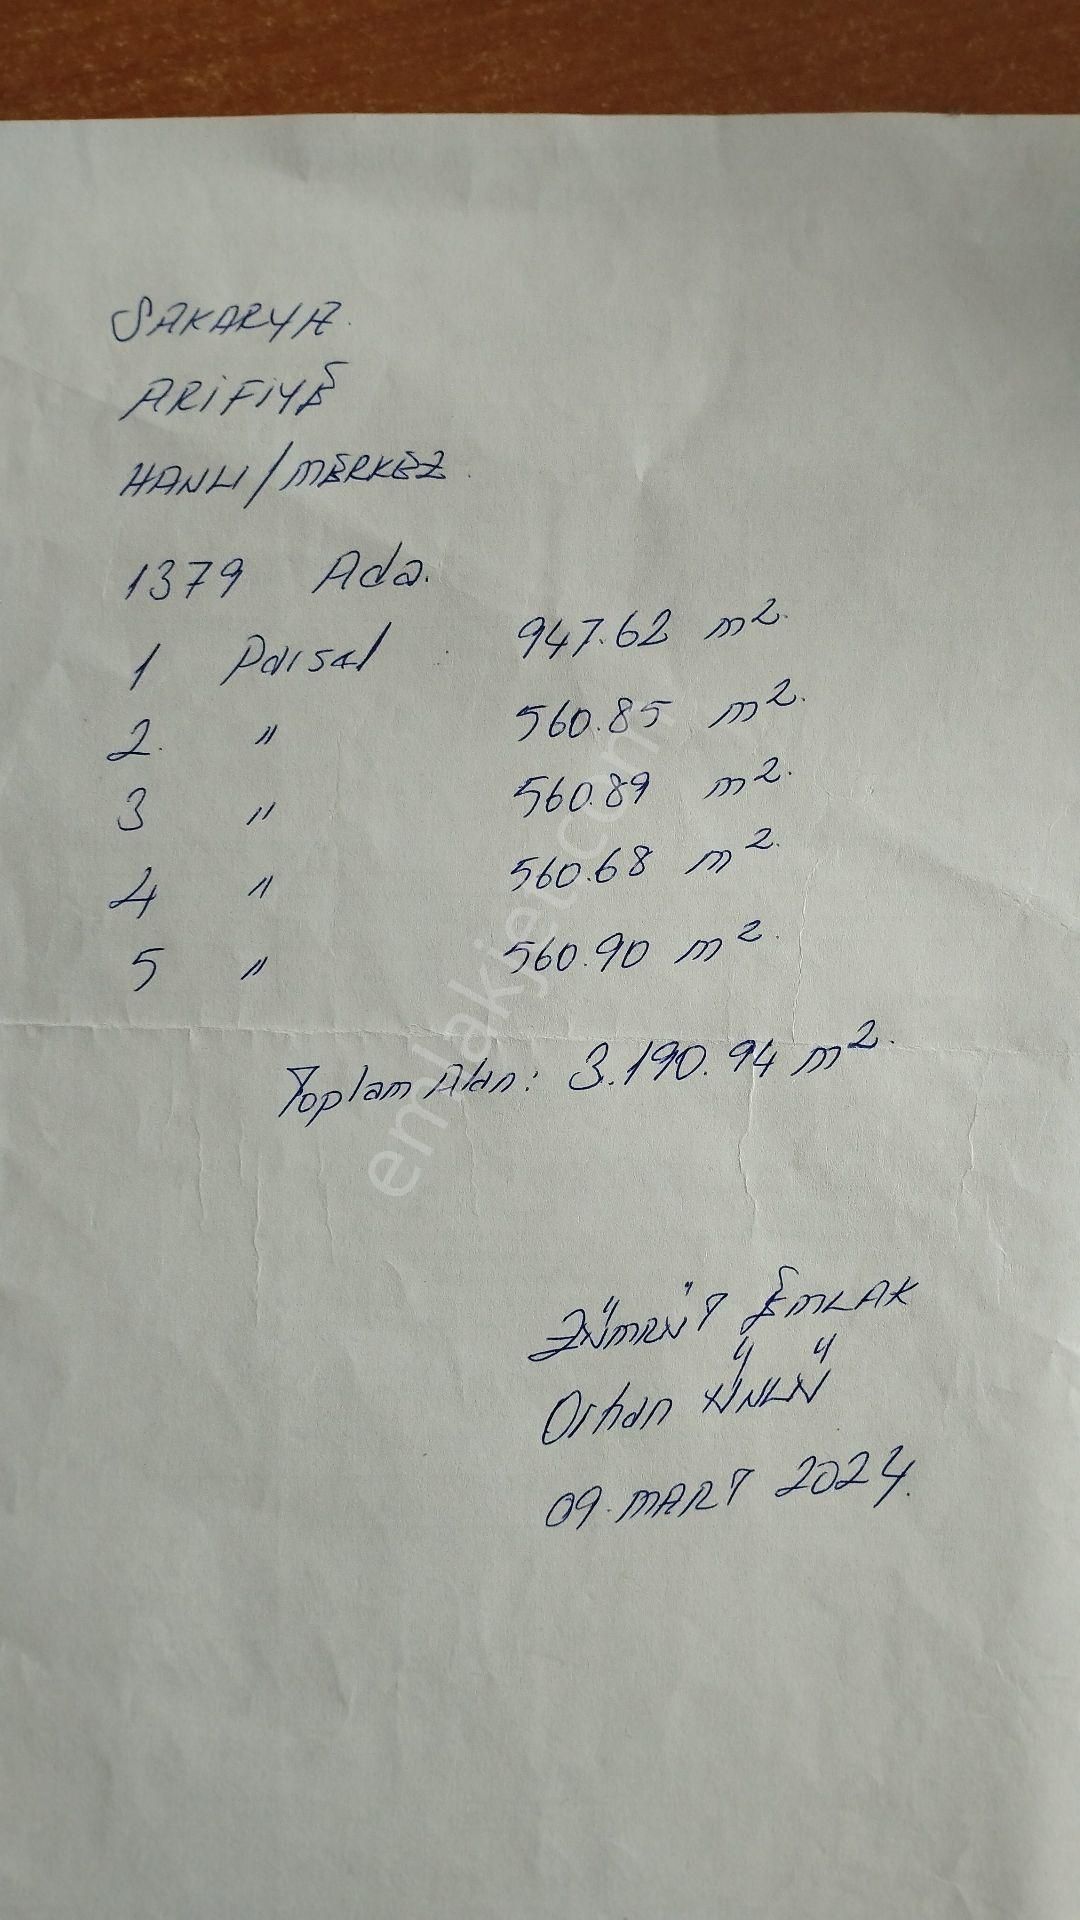 SAKARYA
ARİFİYE
HANLI/MERKEZ
1379 Ada.
1 Parsel 947.62 m2.
2. " 560.85 m2.
3 " 560.89 m2.
4 " 560.68 m2.
5 " 560.90 m2.
Toplam Alan: 3.190.94 m2.
ZÜMRÜT EMLAK
Orhan ÜNLÜ
09.MART 2024.
emlakjet.com